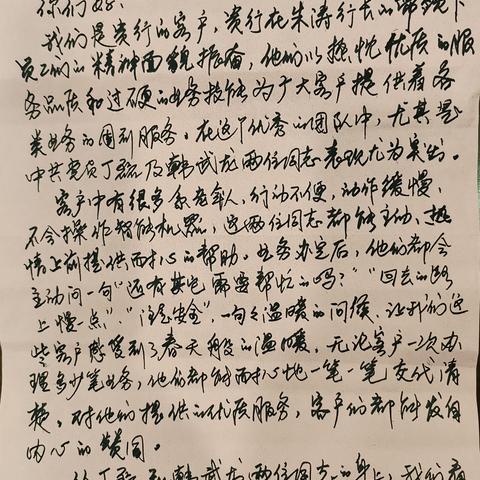 你们好：
我们是贵行的客户，贵行在朱涛行长的带领下
员工们的精神面貌振奋，他们以热忱优质的服
务品质和过硬的业务技能为广大客户提供着各
类业务的周到服务。在这个优秀的团队中，尤其是
中共党员丁磊及韩武龙两位同志表现尤为突出。
客户中有很多系老年人，行动不便，动作缓慢，
不会操作智能机器，这两位同志都能主动、热
情上前提供耐心的帮助。业务办完后，他们都会
主动问一句“还有其它需要帮忙的吗？”“回去的路
上慢一点”、“注意安全”，一句句温暖的问候，让我们这
些客户感受到了春天般的温暖，无论客户一次办
理多少笔业务，他们都能耐心地一笔一笔交代清
楚，对他们提供的优质服务，客户们都能发自
内心的赞同。
从丁磊和韩武龙两位同志的身上，我们看